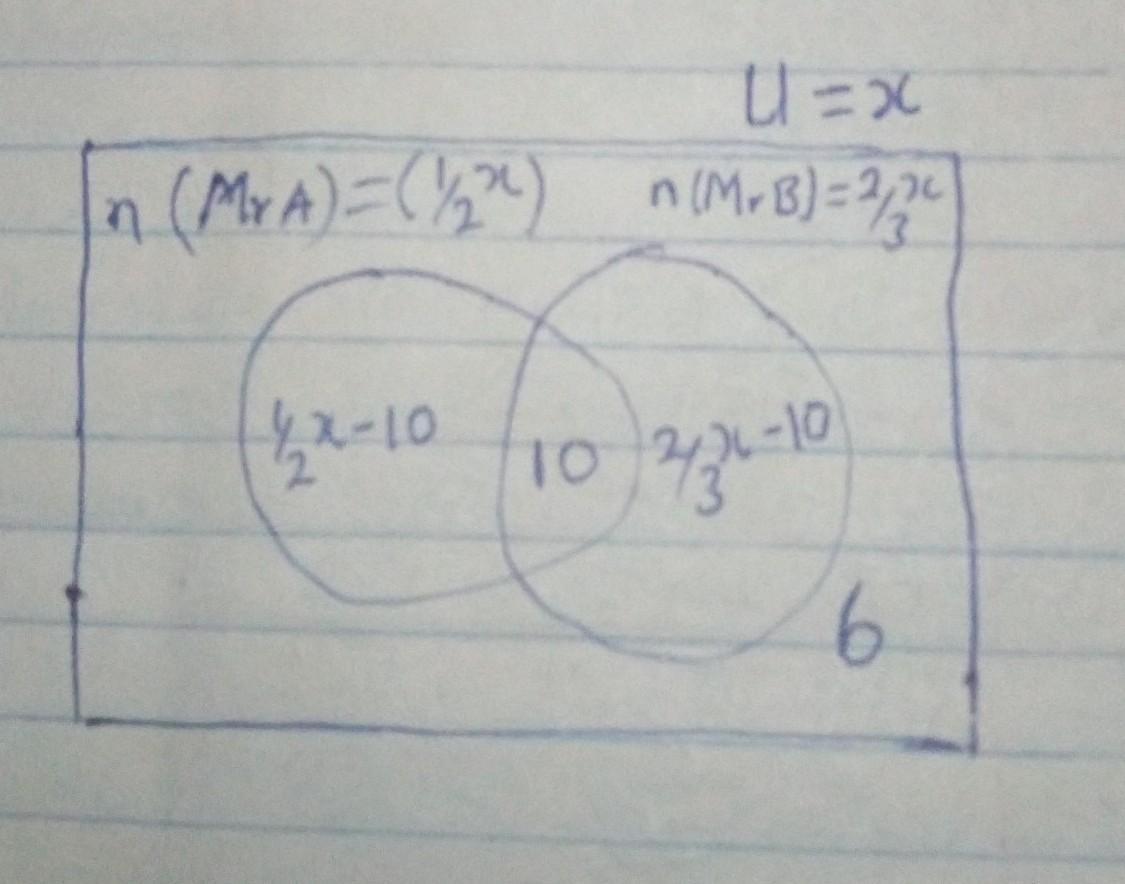 U = x
n (Mr A) = (1/2 x) n (Mr B) = 2/3 x
1/2 x - 10 10 2/3 x - 10
6